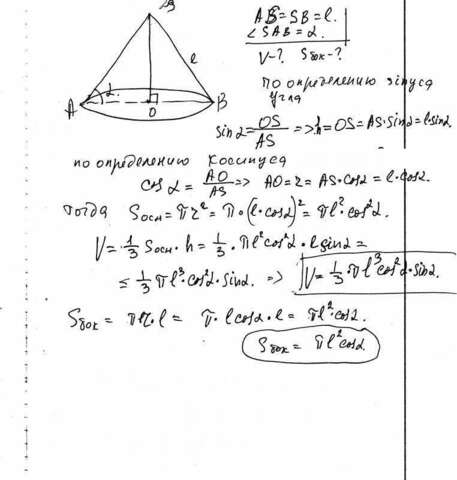 S
AS = SB = l.
∠SAB = α.
V-? Sбок-?
l
A α O B
по определению синуса
угла
sinα = OS/AS => h = OS = AS·sinα = l·sinα.
по определению косинуса
cosα = AO/AS => AO = r = AS·cosα = l·cosα.
тогда Sосн = πr² = π·(l·cosα)² = πl²·cos²α.
V = 1/3 Sосн·h = 1/3·πl²cos²α·l sinα =
= 1/3 πl³·cos²α·sinα. => V = 1/3·πl³cos²α·sinα.
Sбок = πr·l = π·l cosα·l = πl²·cosα.
Sбок = πl²cosα.